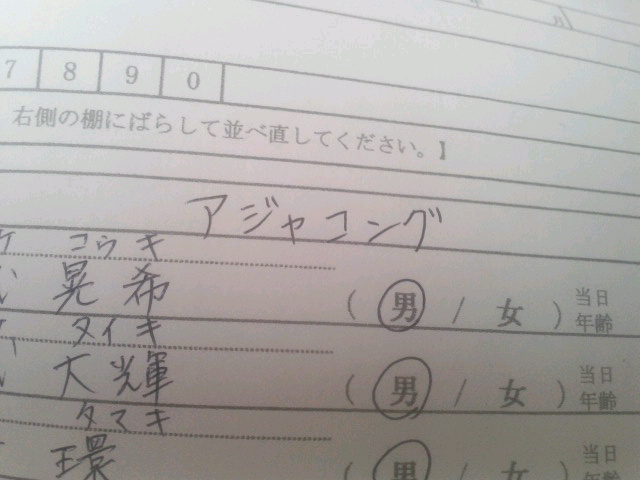 7 8 9 0
右側の棚にばらして並べ直してください。】
アジャコング
コウキ
晃希 ( 男 / 女 ) 当日年齢
タイキ
大輝 ( 男 / 女 ) 当日年齢
タマキ
環 ( 男 / 女 ) 当日